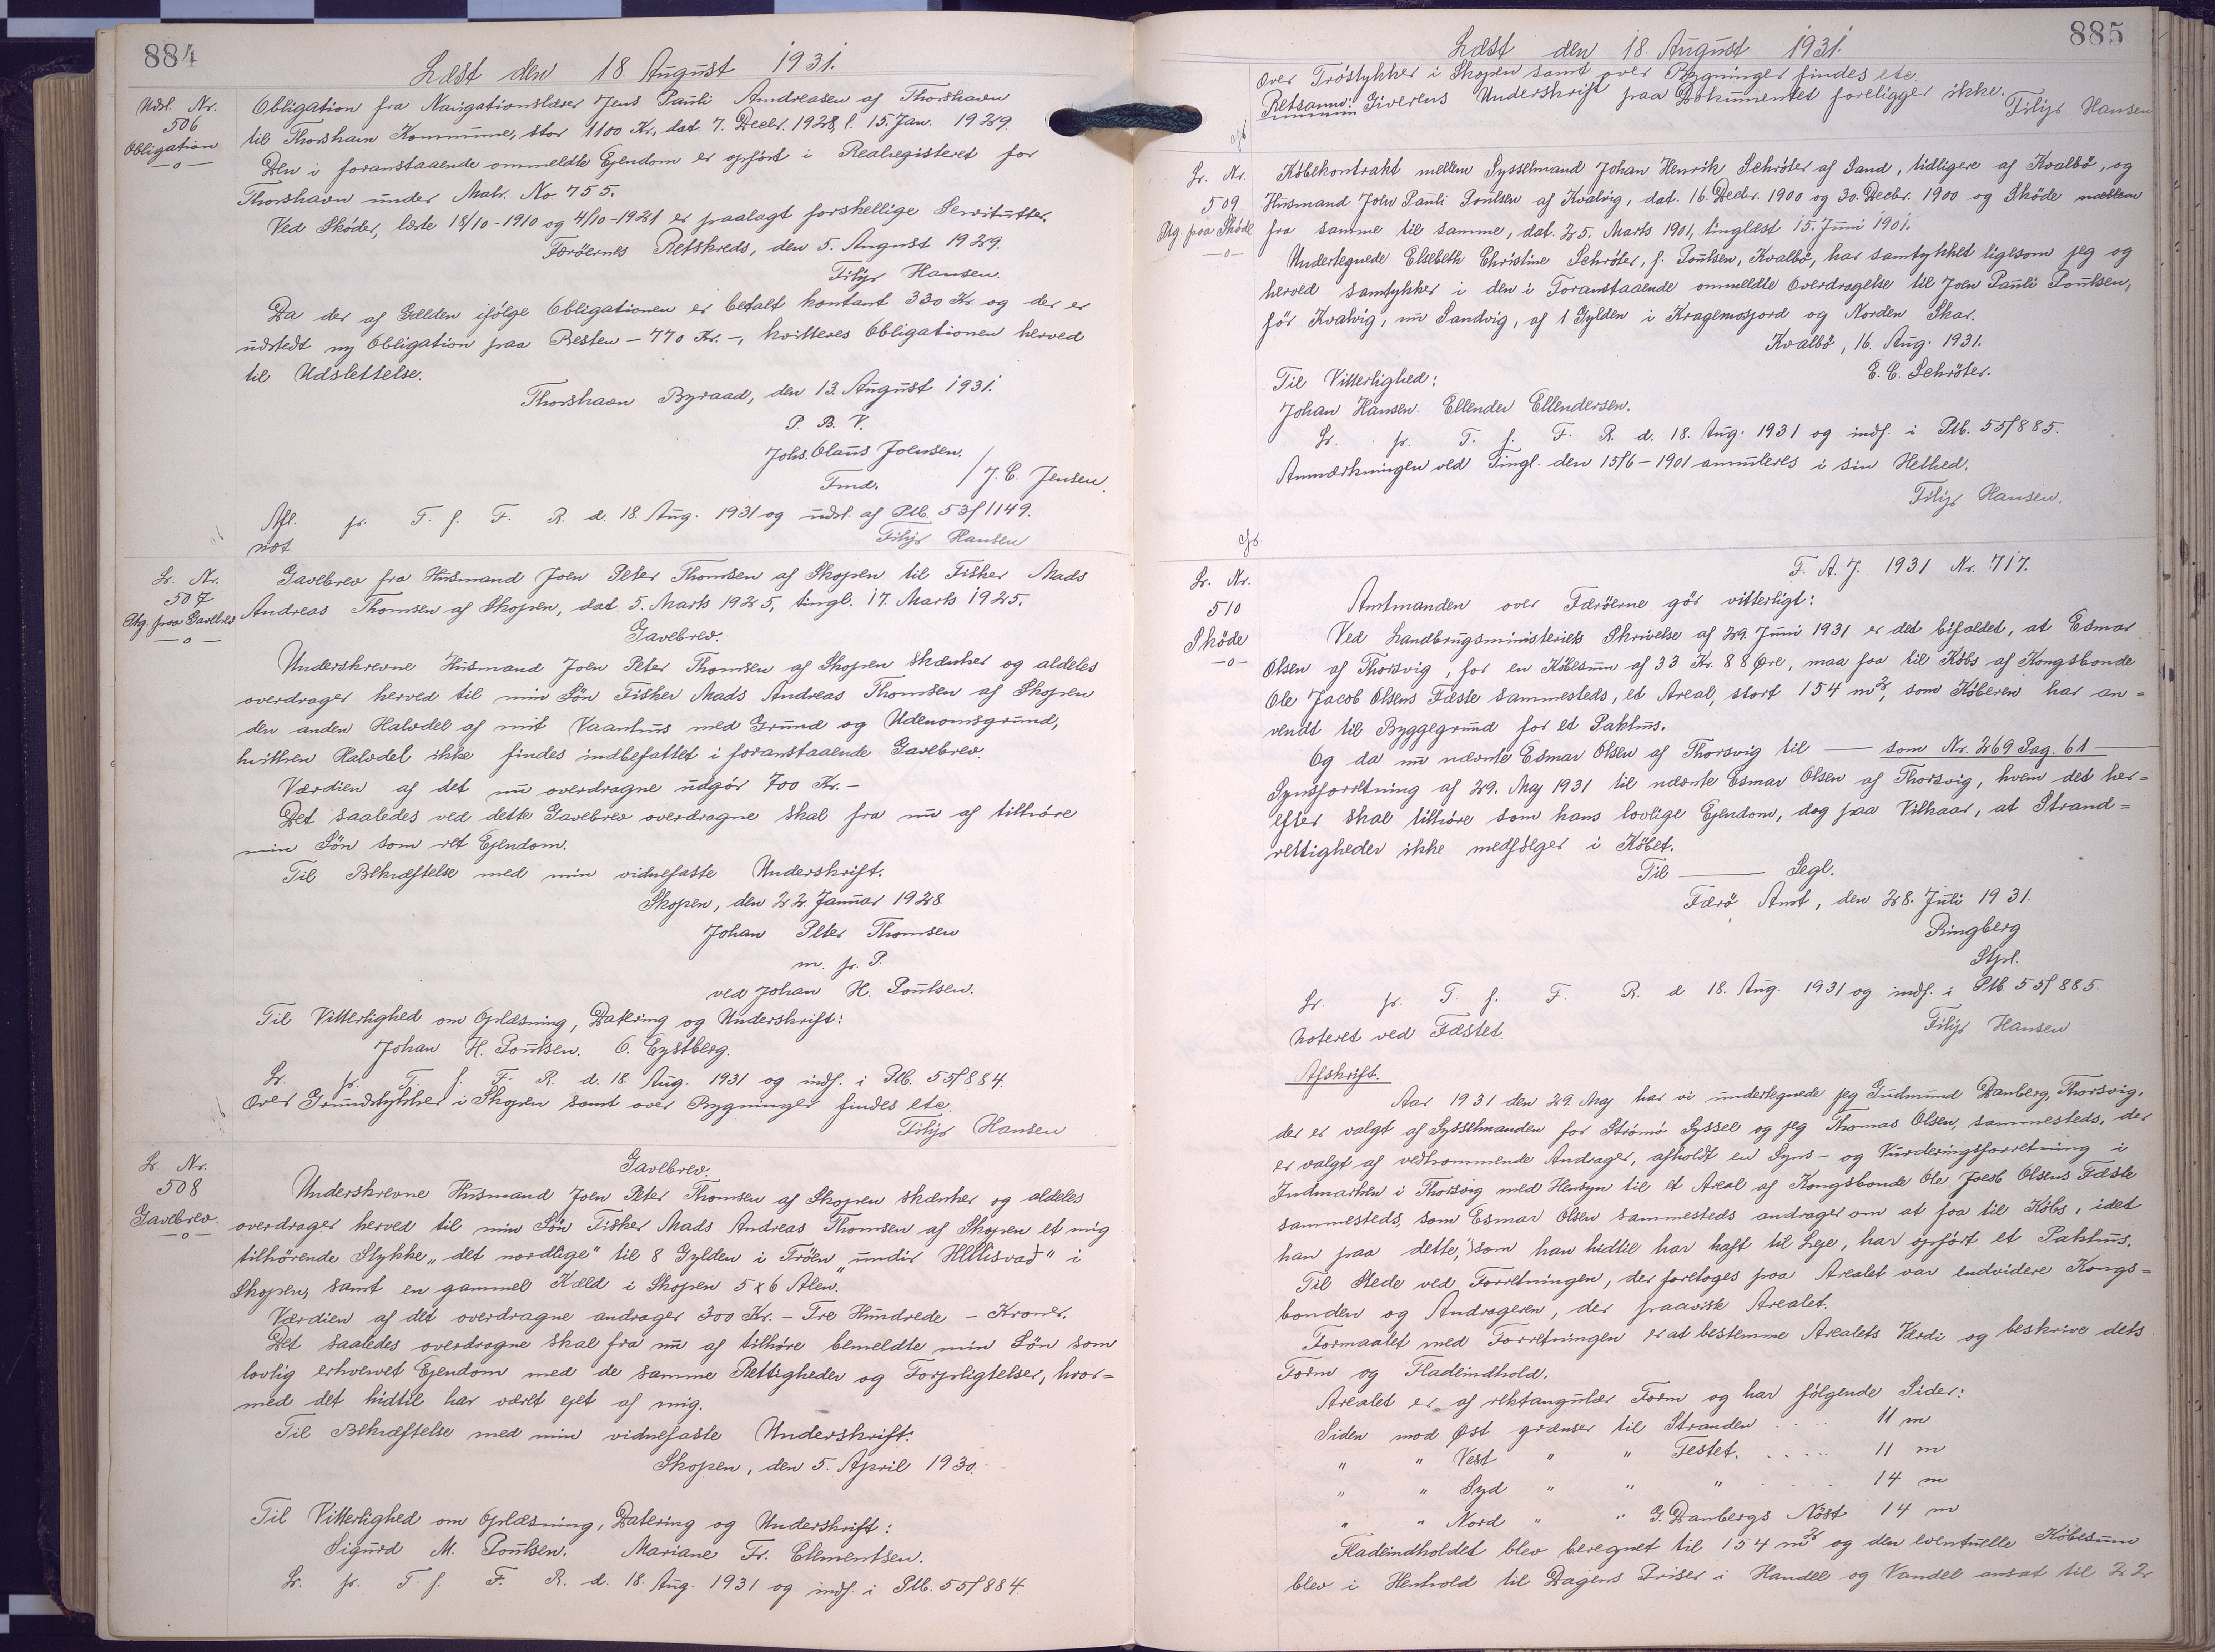 884
Læst den 18. August 1931.
Udsl. Nr.
506
Obligation
—o—
Obligation fra Navigationslærer Jens Pauli Andreasen af Thorshavn
til Thorshavn Kommune, stor 1100 Kr., dat. 7. Decbr. 1928, l. 15. Jan. 1929.
Den i foranstaaende ommeldte Ejendom er opført i Realregisteret for
Thorshavn under Matr. No. 755.
Ved Skøder, læste 18/10-1910 og 4/10-1921 er paalagt forskellige Servitutter.
Færöernes Retskreds, den 5. August 1929.
Filip Hansen.
Da der af Gælden ifölge Obligationen er betalt kontant 330 Kr. og der er
udstedt ny Obligation paa Resten – 770 Kr. –, kvitteres Obligationen herved
til Udslettelse.
Thorshavn Byraad, den 13. August 1931.
P. B. V.
Johs. Olaus Joensen.
Fmd. / J. C. Jensen.
Afl. pr. T. f. F. R. d. 18. Aug. 1931 og udsl. af Ptb. 53/1149.
not. Filip Hansen
Lr. Nr.
507
Ptg. paa Gavebrev
—o—
Gavebrev fra Husmand Joen Peter Thomsen af Skopen til Fisker Mads
Andreas Thomsen af Skopen, dat. 5. Marts 1925, tingl. 17. Marts 1925.
Gavebrev.
Underskrevne Husmand Joen Peter Thomsen af Skopen skænker og aldeles
overdrager herved til min Sön Fisker Mads Andreas Thomsen af Skopen
den anden Halvdel af mit Vaanhus med Grund og Udenomsgrund,
hvilken Halvdel ikke findes indbefattet i foranstaaende Gavebrev.
Værdien af det nu overdragne udgör 700 Kr. –
Det saaledes ved dette Gavebrev overdragne skal fra nu af tilhöre
min Sön som ret Ejendom.
Til Bekræftelse med min vidnefaste Underskrift.
Skopen, den 22. Januar 1928
Johan Peter Thomsen
m. p. P.
ved Johan H. Poulsen.
Til Vitterlighed om Oplæsning, Datering og Underskrift:
Johan H. Poulsen. O. Eystberg.
Lr. pr. T. f. F. R. d. 18. Aug. 1931 og indf. i Ptb. 55/884.
Over Grundstykker i Skopen samt over Bygninger findes etc.
Filip Hansen
Lr. Nr.
508
Gavebrev.
—o—
Gavebrev.
Underskrevne Husmand Joen Peter Thomsen af Skopen skænker og aldeles
overdrager herved til min Sön Fisker Mads Andreas Thomsen af Skopen et mig
tilhörende Stykke „det nordlige" til 8 Gylden i Tröen „undir Hellisvað" i
Skopen, samt en gammel Kæld i Skopen 5 x 6 Alen.
Værdien af det overdragne andrager 300 Kr. – Tre Hundrede – Kroner.
Det saaledes overdragne skal fra nu af tilhöre bemeldte min Sön som
lovlig erhvervet Ejendom med de samme Rettigheder og Forpligtelser, hvor=
med det hidtil har været ejet af mig.
Til Bekræftelse med min vidnefaste Underskrift.
Skopen, den 5. April 1930.
Til Vitterlighed om Oplæsning, Datering og Underskrift:
Sigurd M. Poulsen. Mariane Fr. Clementsen.
Lr. pr. T. f. F. R. d. 18. Aug. 1931 og indf. i Ptb. 55/884.
885
Læst den 18. August 1931.
Over Tröstykker i Skopen samt over Bygninger findes etc.
Retsanm: Giverens Underskrift paa Dokumentet foreligger ikke.
Filip Hansen
Lr. Nr.
509
Ptg. paa Sköde
—o—
Köbekontrakt mellem Sysselmand Johan Henrik Schröter af Sand, tidligere af Kvalbö, og
Husmand Joen Pauli Poulsen af Kvalvig, dat. 16. Decbr. 1900 og 30. Decbr. 1900 og Sköde mellem
fra samme til samme, dat. 25. Marts 1901, tinglæst 15. Juni 1901.
Undertegnede Elsebeth Christine Schröter, f. Poulsen, Kvalbö, har samtykket ligesom jeg og
herved samtykker i den i Foranstaaende ommeldte Overdragelse til Joen Pauli Poulsen,
för Kvalvig, nu Sandvig, af 1 Gylden i Kragemosjord og Norden Skar.
Kvalbö, 16. Aug. 1931.
E. C. Schröter.
Til Vitterlighed:
Johan Hansen. Ellender Ellendersen.
Lr. pr. T. f. F. R. d. 18. Aug. 1931 og indf. i Ptb. 55/885.
Anmærkningen ved Tingl. den 15/6-1901 annulleres i sin Helhed.
Filip Hansen.
Lr. Nr.
510
Sköde
—o—
F. A. J. 1931 Nr. 717.
Amtmanden over Færöerne gör vitterligt:
Ved Landbrugsministeriets Skrivelse af 29. Juni 1931 er det bifaldet, at Esmar
Olsen af Thorsvig, for en Köbesum af 33 Kr. 88 Øre, maa faa til Köbs af Kongsbonde
Ole Jacob Olsens Fæste sammesteds, et Areal, stort 154 m², som Köberen har an=
vendt til Byggegrund for et Pakhus.
Og da nu nævnte Esmar Olsen af Thorsvig til — som Nr. 269 Pag. 61 —
Synsforretning af 29. Maj 1931 til nævnte Esmar Olsen af Thorsvig, hvem det her=
efter skal tilhöre som hans lovlige Ejendom, dog paa Vilkaar, at Strand=
rettigheder ikke medfölger i Köbet.
Til ——— Segl.
Færö Amt, den 28. Juli 1931.
Ringberg
Stpl.
Lr. pr. T. f. F. R. d 18. Aug. 1931 og indf. i Ptb. 55/885.
Noteret ved Fæstet. Filip Hansen
Afskrift.
Aar 1931 den 29. Maj har vi undertegnede jeg Gudmund Danberg, Thorsvig,
der er valgt af Sysselmanden for Strömö Syssel og jeg Thomas Olsen, sammesteds, der
er valgt af vedkommende Andrager, afholdt en Syns- og Vurderingsforretning i
Indmarken i Thorsvig med Hensyn til et Areal af Kongsbonde Ole Jacob Olsens Fæste
sammesteds, som Esmar Olsen sammesteds andrager om at faa til Köbs, idet
han paa dette, som han hidtil har haft til Leje, har opfört et Pakhus.
Til Stede ved Forretningen, der foretoges paa Arealet var endvidere Kongs=
bonden og Andrageren, der paaviste Arealet.
Formaalet med Forretningen er at bestemme Arealets Værdi og beskrive dets
Form og Fladeindhold.
Arealet er af rektangulær Form og har fölgende Sider:
Siden mod Øst grænser til Stranden . . . . 11 m
" " Vest " " Festet. . . . . . 11 m
" " Syd " " " . . . . . 14 m
" " Nord " " G. Danbergs Nöst 14 m
Fladeindholdet blev beregnet til 154 m² og den eventuelle Köbesum
blev i Henhold til Dagens Priser i Handel og Vandel ansat til 22